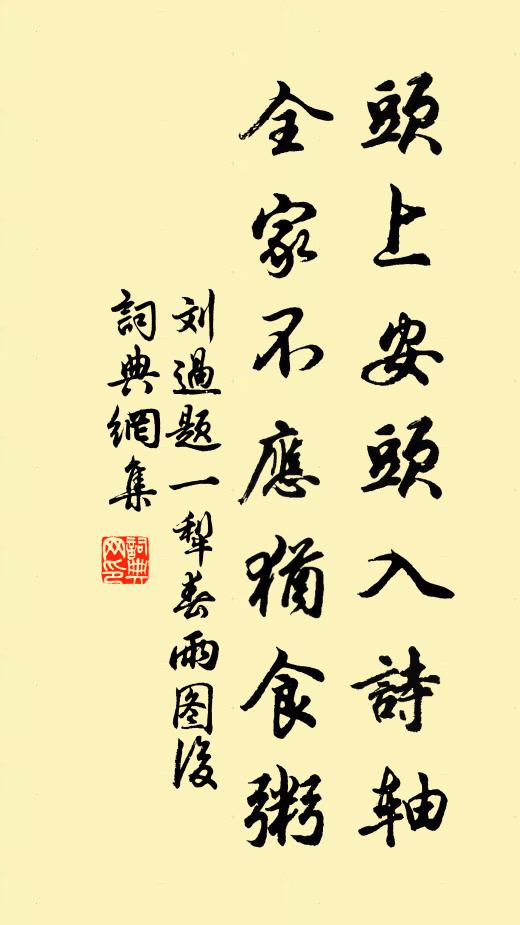 頭上安頭入詩軸
全家不應猶食粥
刘過題一犁春雨图後
詞典網集
詞典網印